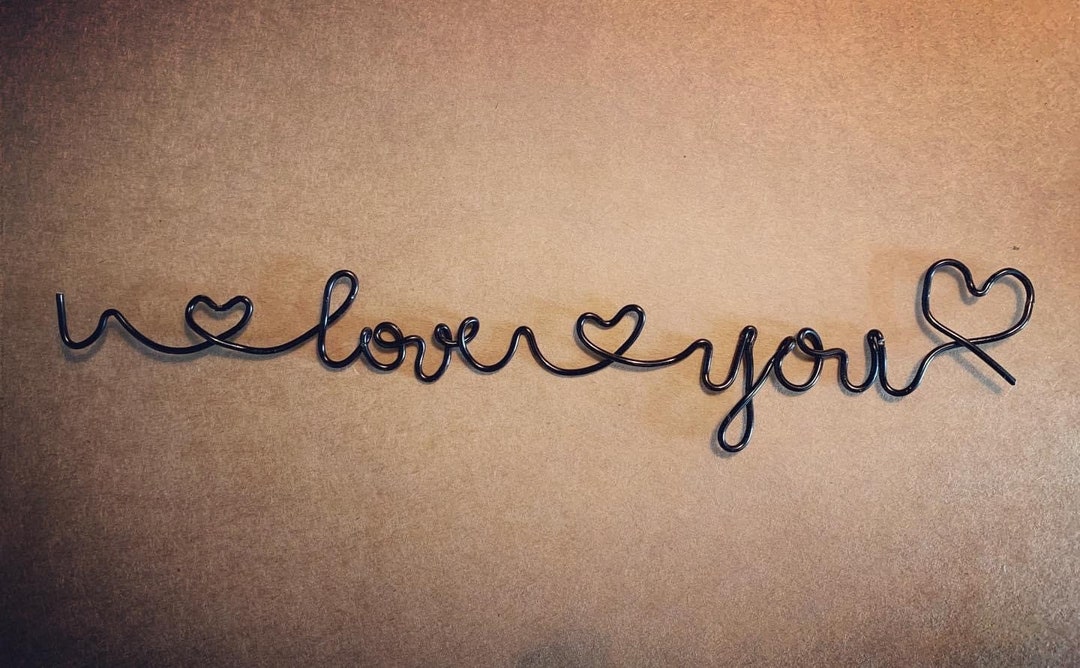 love you